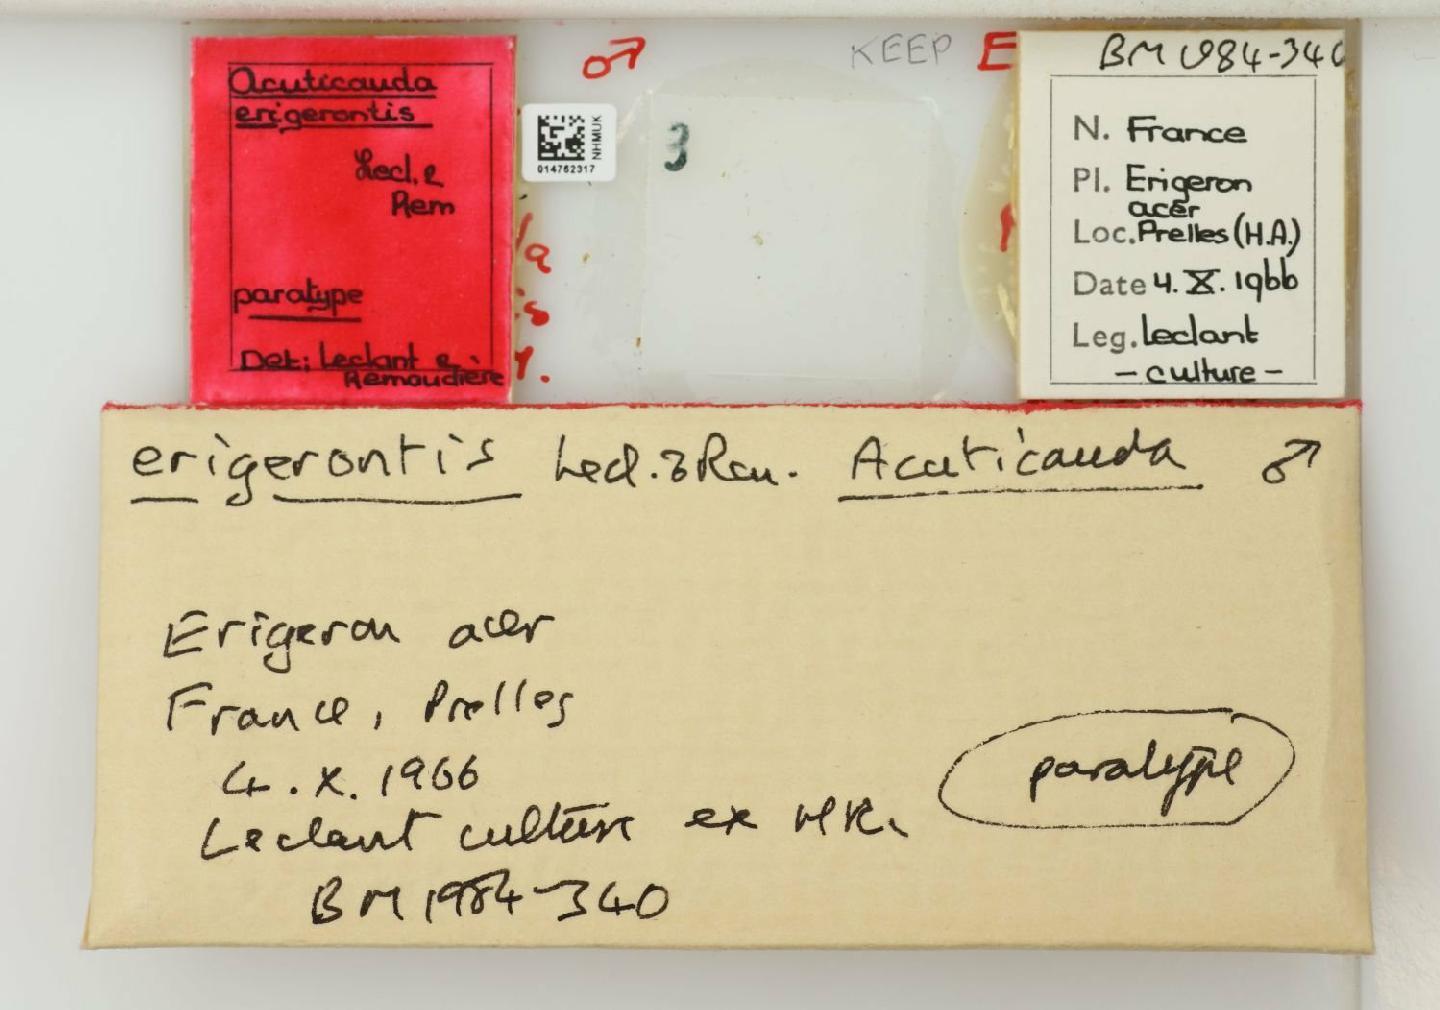 Acuticauda
erigerontis
Lecl. &
Rem
paratype
Det: Leclant &
Remaudière
♂
NHMUK
014762317
3
KEEP
E
BM 1984-340
N. France
Pl. Erigeron
acer
Loc. Prelles (H.A.)
Date 4. X. 1966
Leg. Leclant
- culture -
erigerontis Lecl. & Rem. Acuticauda ♂
Erigeron acer
France, Prelles
4. X. 1966
Leclant culture ex
BM 1984-340
paratype